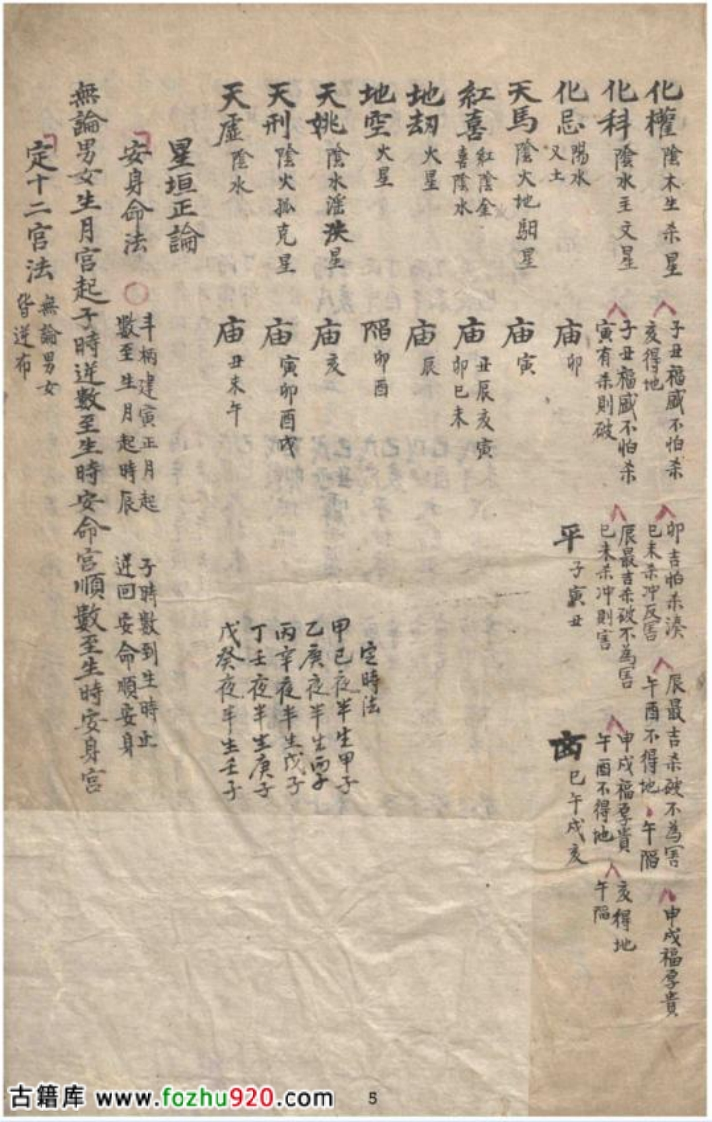 化權 陰木生杀星 子丑福威不怕杀 亥得地 卯吉怕杀湊 巳未杀冲反害 辰最吉杀破不為害 午酉不得地 午陷 申戌福厚貴
化科 陰水主文星 子丑福威不怕杀 寅有杀則破 辰最吉杀破不為害 巳未杀冲則害 申戌福厚貴 午酉不得地 亥得地 午陷
化忌 陽水 又土 庙 卯 平 子寅丑 巳午戌亥
天馬 陰火地駟星 庙 寅
紅喜 紅陰金 喜陰水 庙 丑辰亥寅 卯巳未
地劫 火星 庙 辰
地空 火星 陷 卯酉
天姚 陰水滛泆星 庙 亥
天刑 陰火孤克星 庙 寅卯酉戌
天虛 陰水 庙 丑未午
定時法
甲巳夜半生甲子
乙庚夜半生丙子
丙辛夜半生戊子
丁壬夜半生庚子
戊癸夜半生壬子
星垣正論
安身命法 〇 斗柄建寅正月起 數至生月起時辰 子時數到生時止 逆回安命順安身
無論男女生月宫起子時逆數至生時安命宫順數至生時安身宫
定十二宫法 無論男女 皆逆布
古籍库 www.fozhu920.com
5